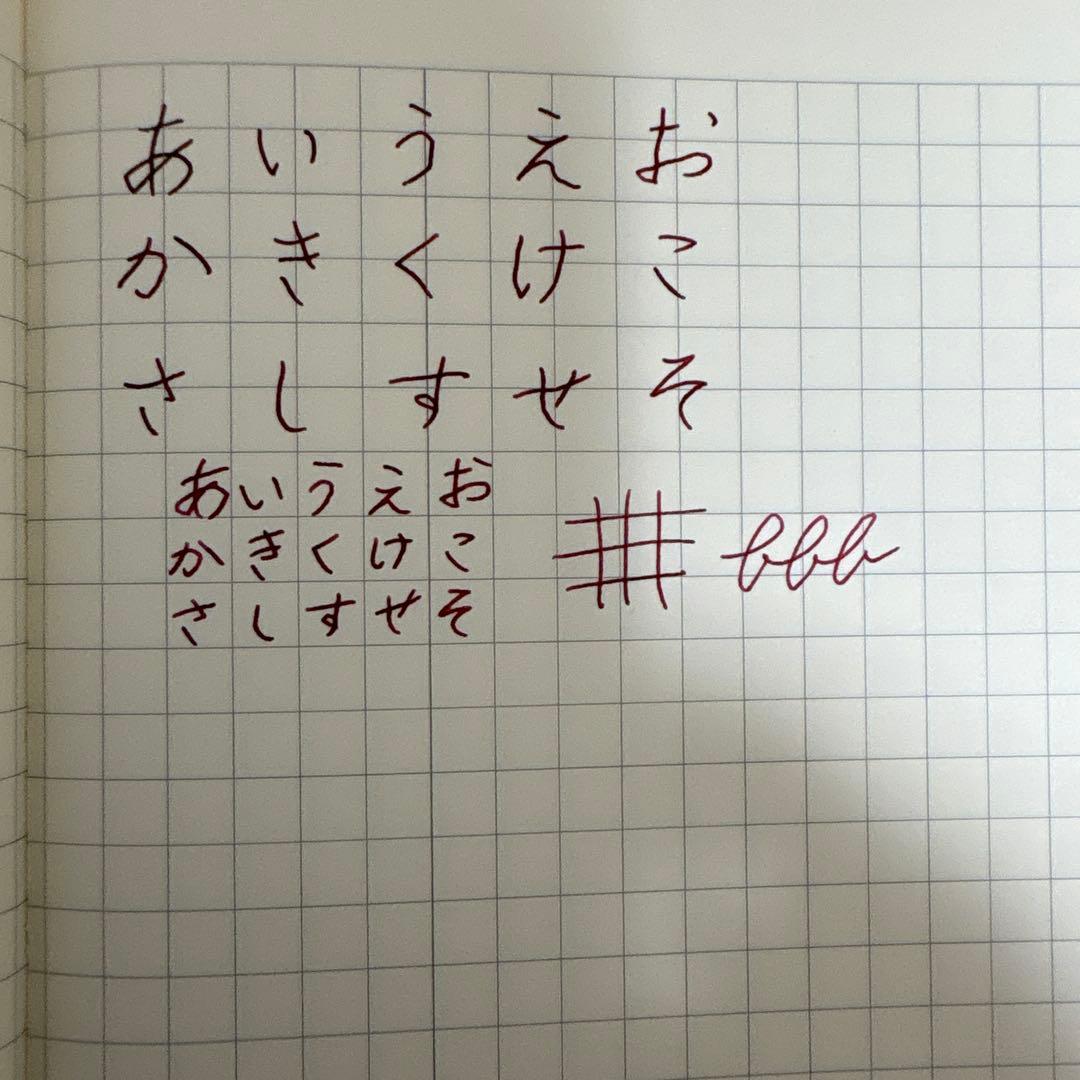 あいうえお
かきくけこ
さしすせそ
あいうえお
かきくけこ
さしすせそ
bbb